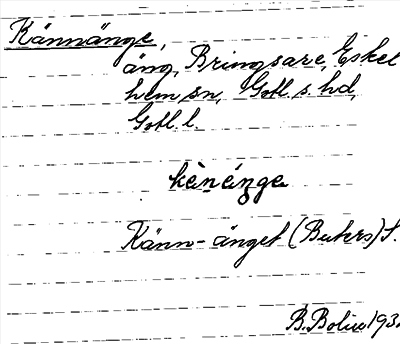 Kännänge,
äng, Bringsare, Eskel
hem sn, Gotl. s. hd,
Gotl. l.
kènénge
Känn-änget (Buters) S.
B. Bolin 193